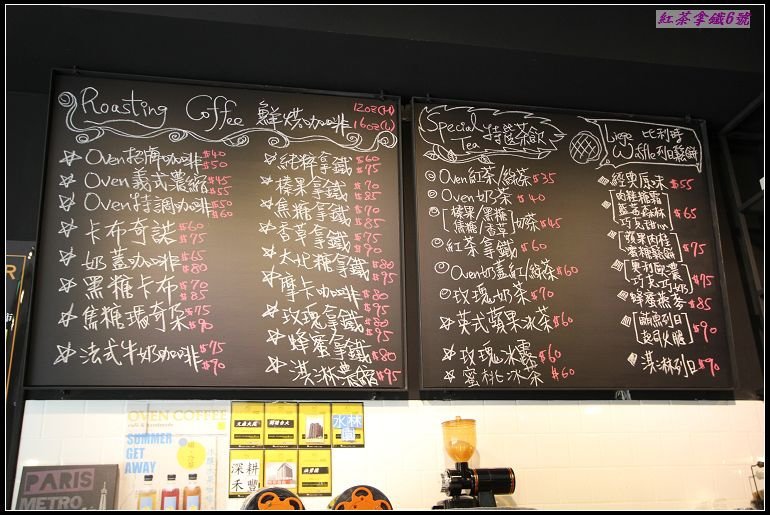 紅茶拿鐵6號
Roasting Coffee 鮮烘咖啡 12oz(M)
16oz(L)
Oven招牌咖啡 $40
$50
Oven義式濃縮 $45
$55
Oven特調咖啡 $50
$60
卡布奇諾 $60
$75
奶蓋咖啡 $65
$80
黑糖卡布 $70
$85
焦糖瑪奇朵 $75
$90
法式牛奶咖啡 $75
$90
純粹拿鐵 $60
$75
榛果拿鐵 $70
$85
焦糖拿鐵 $70
$85
香草拿鐵 $75
$90
太妃糖拿鐵 $80
$95
摩卡咖啡 $80
$95
玫瑰拿鐵 $80
$95
蜂蜜拿鐵 $80
淇淋濃縮 $95
Special
Tea 特選茶飲
Oven紅茶/綠茶 $35
Oven奶茶 $40
[榛果/黑糖
焦糖/香草]奶茶 $45
紅茶拿鐵 $60
Oven奶蓋紅/綠茶 $60
玫瑰奶茶 $70
英式蘋果冰茶 $60
玫瑰冰露 $60
蜜桃冰茶 $60
Liege 比利時
Waffle列日鬆餅
經典原味 $55
肉桂糖霜
藍莓森林 $65
蘋果肉桂
蜜糖鬆餅 $75
奧利歐濃
巧克巧奶 $75
蜂蜜燕麥 $85
鮪魚列日
起司火腿 $90
淇淋列日 $90
OVEN COFFEE
SUMMER
GET
AWAY
水林
深耕
禾豐
PARIS
METRO